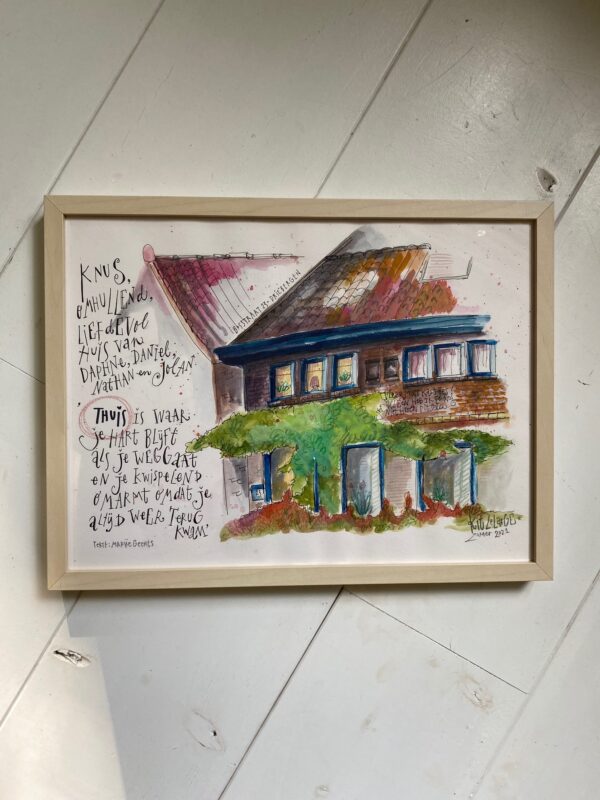 Knus,
omhullend,
liefdevol
thuis van
Daphne, Daniel,
Nathan en Jolan
Thuis is waar
je hart blijft
als je weggaat
en je kwispelend
omarmt omdat je
altijd weer terug
kwam
Tekst: Marije Geerts
Driebergen
Zomer 2021